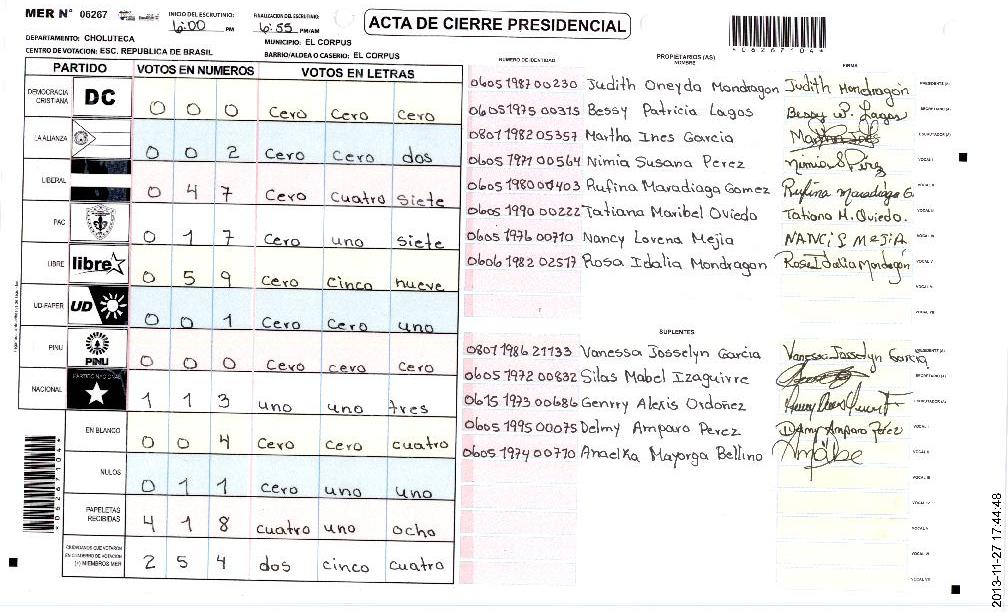 MER N° 06267
INICIO DEL ESCRUTINIO: 6:00 PM
FINALIZACION DEL ESCRUTINIO: 6:55 PM/AM
ACTA DE CIERRE PRESIDENCIAL
*062671044*
DEPARTAMENTO: CHOLUTECA
MUNICIPIO: EL CORPUS
CENTRO DE VOTACION: ESC. REPUBLICA DE BRASIL
BARRIO/ALDEA O CASERIO: EL CORPUS
PARTIDO VOTOS EN NUMEROS VOTOS EN LETRAS
DEMOCRACIA CRISTIANA DC 0 0 0 cero cero cero
LA ALIANZA 0 0 2 cero cero dos
LIBERAL 0 4 7 cero cuatro siete
PAC 0 1 7 cero uno siete
LIBRE libre 0 5 9 cero cinco nueve
UD-FAPER UD 0 0 1 cero cero uno
PINU PINU 0 0 0 cero cero cero
NACIONAL PARTIDO NACIONAL 1 1 3 uno uno tres
EN BLANCO 0 0 4 cero cero cuatro
NULOS 0 1 1 cero uno uno
PAPELETAS RECIBIDAS 4 1 8 cuatro uno ocho
CIUDADANOS QUE VOTARON EN CUADERNO DE VOTACION (+) MIEMBROS MER 2 5 4 dos cinco cuatro
PROPIETARIOS (AS)
NUMERO DE IDENTIDAD NOMBRE FIRMA
0605 1987 00230 Judith Oneyda Mondragon Judith Mondragón PRESIDENTE (A)
0605 1975 00315 Bessy Patricia Lagos Bessy P. Lagos SECRETARIO (A)
0801 1982 05357 Martha Ines Garcia ESCRUTADOR (A)
0605 1971 00564 Nimia Susana Perez Nimia S Pérez VOCAL I
0605 1980 00403 Rufina Maradiaga Gomez Rufina Maradiaga G. VOCAL II
0605 1990 00222 Tatiana Maribel Oviedo Tatiana M. Oviedo. VOCAL III
0605 1976 00710 Nancy Lorena Mejia NANCiS MEJiA VOCAL IV
0606 1982 02517 Rosa Idalia Mondragon Rosa Idalia Mondragón VOCAL V
VOCAL VI
VOCAL VII
SUPLENTES
0801 1986 21133 Vanessa Josselyn Garcia Vanessa Josselyn Garcia PRESIDENTE (A)
0605 1972 00832 Silas Mabel Izaguirre SECRETARIO (A)
0615 1973 00686 Genrry Alexis Ordoñez ESCRUTADOR (A)
0605 1995 00075 Delmy Amparo Perez Delmy Amparo Pérez VOCAL I
0605 1974 00710 Anaelka Mayorga Bellino VOCAL II
VOCAL III
VOCAL IV
VOCAL V
VOCAL VI
VOCAL VII
*062671044*
2013-11-27 17:44:48